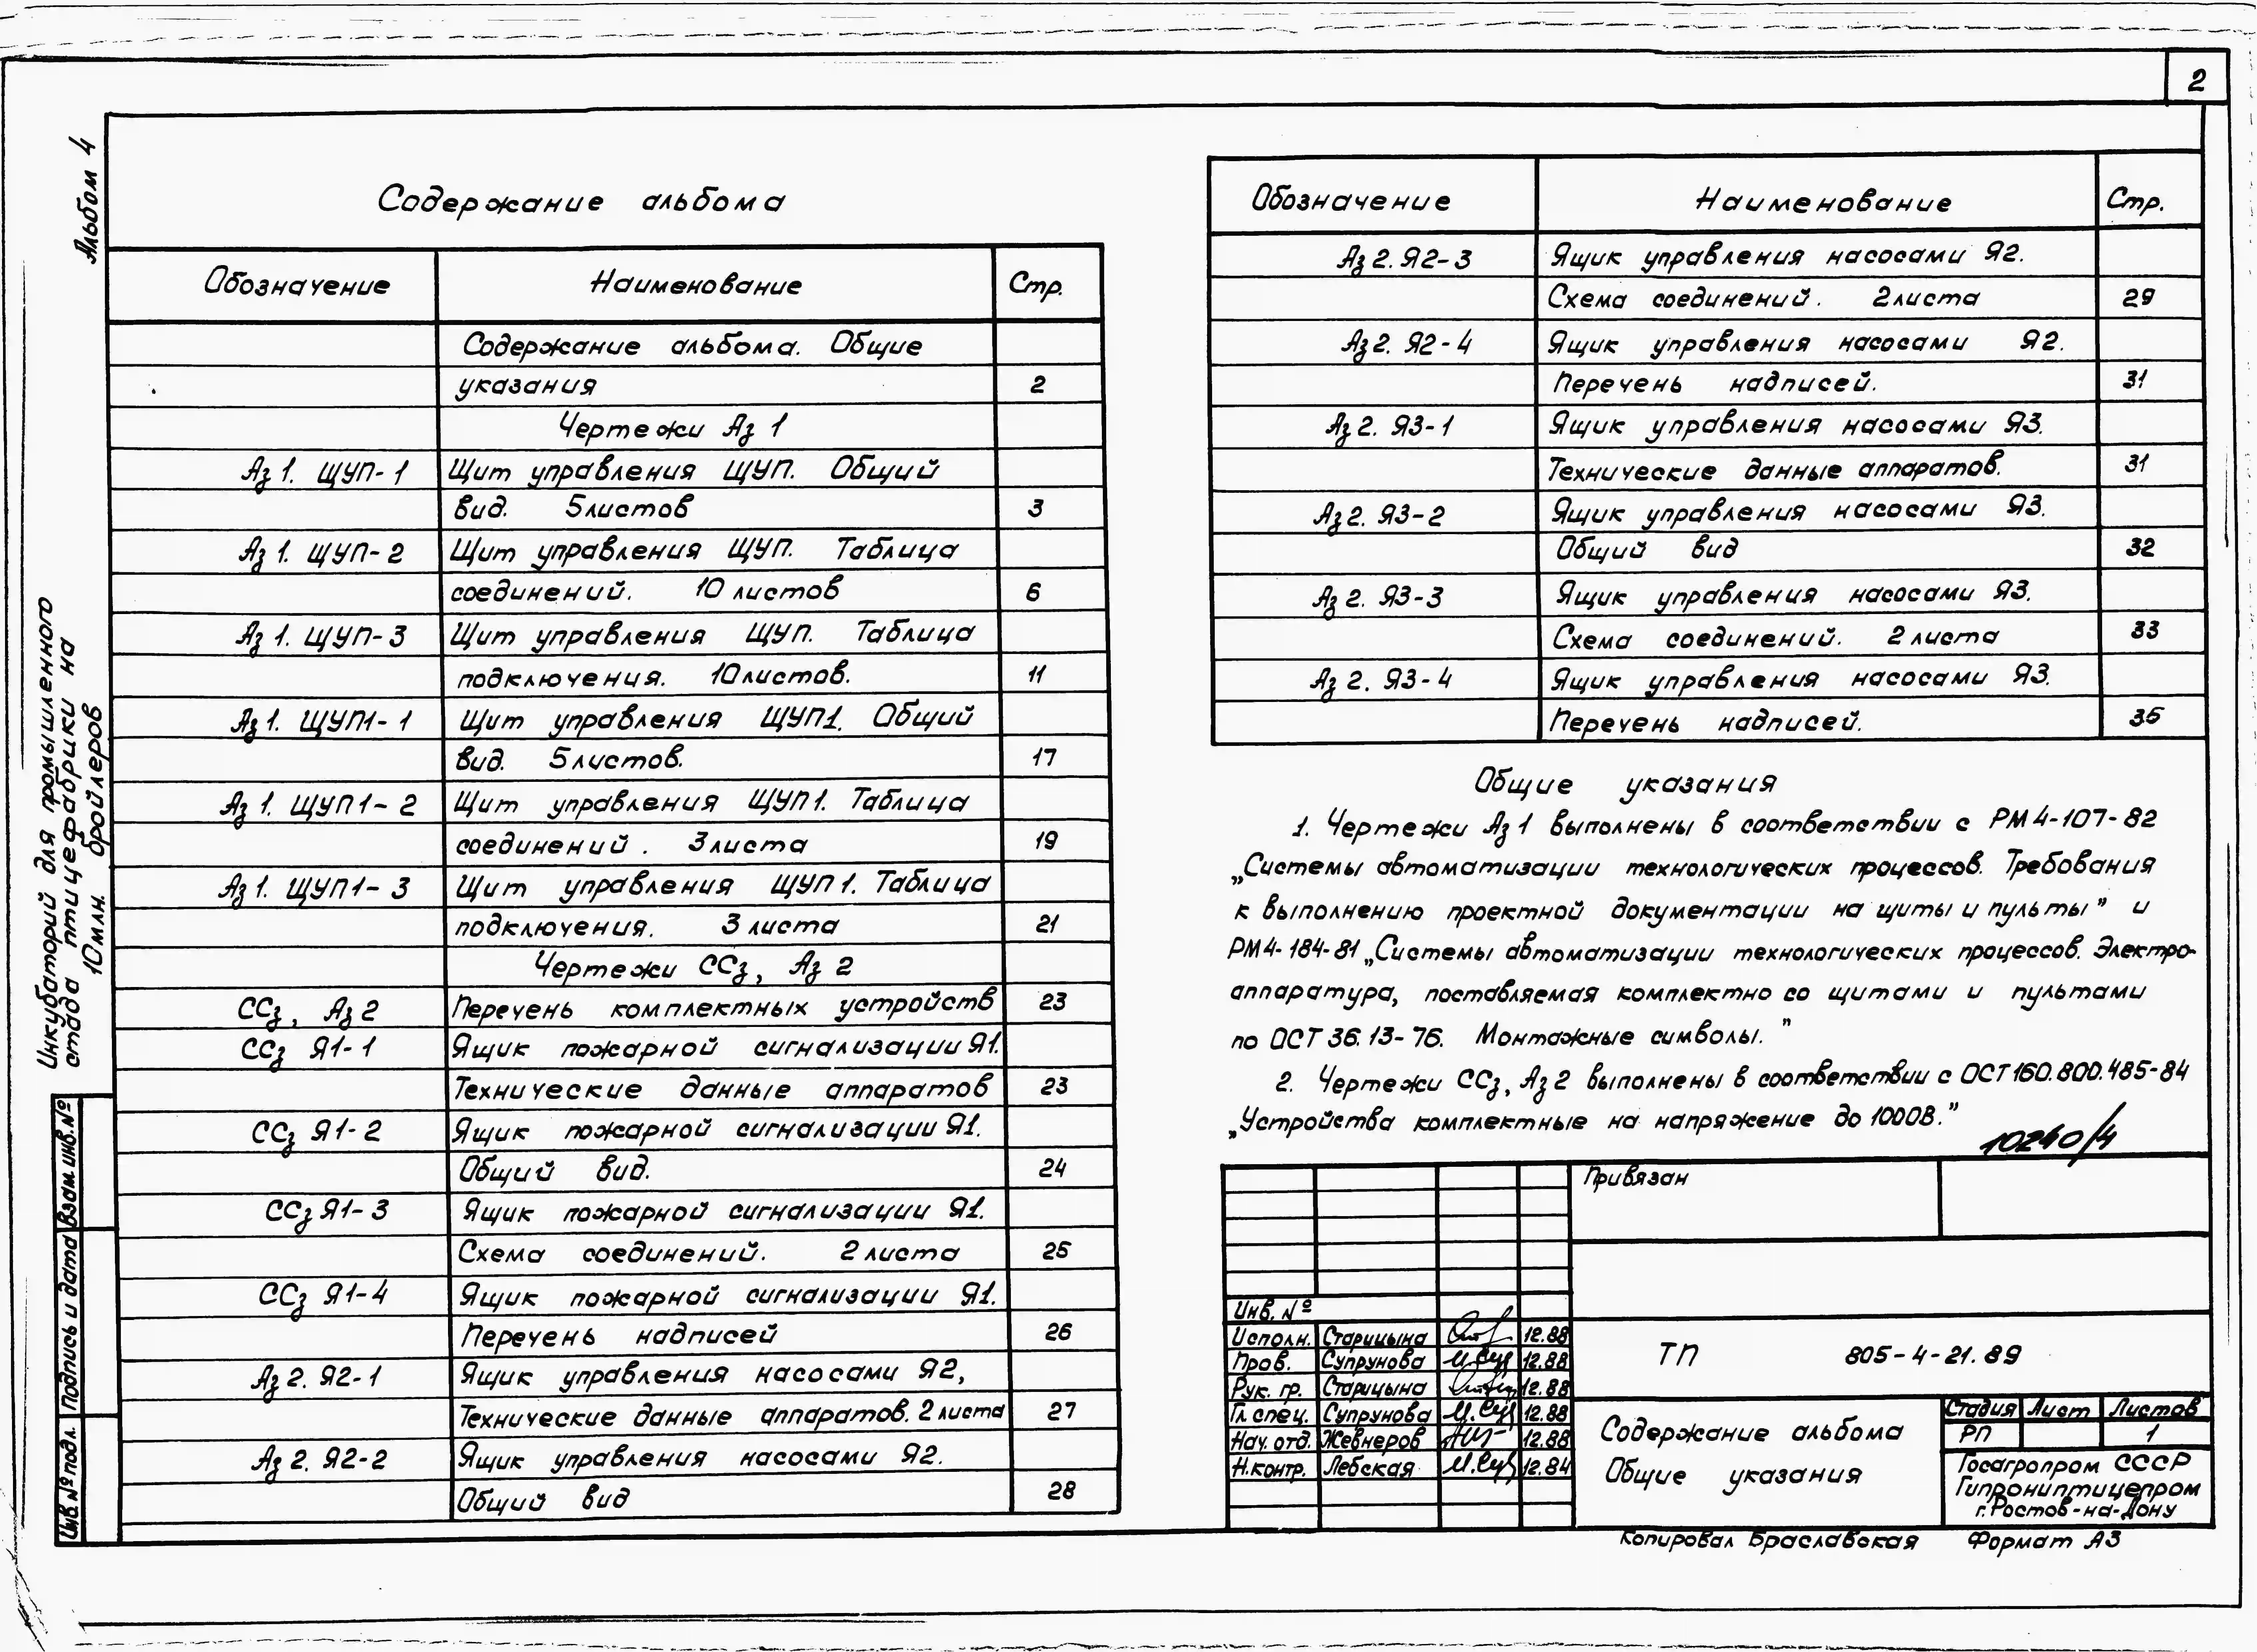 2
Альбом 4
Инкубаторий для промышленного
стада птицефабрики на
10млн. бройлеров
Содержание альбома
Обозначение Наименование Стр.
Содержание альбома. Общие
указания 2
Чертежи Аз 1
Аз 1. ЩУП-1 Щит управления ЩУП. Общий
вид. 5листов 3
Аз 1. ЩУП-2 Щит управления ЩУП. Таблица
соединений. 10 листов 6
Аз 1. ЩУП-3 Щит управления ЩУП. Таблица
подключения. 10листов. 11
Аз 1. ЩУП1-1 Щит управления ЩУП1. Общий
вид. 5листов. 17
Аз 1. ЩУП1-2 Щит управления ЩУП1. Таблица
соединений. 3листа 19
Аз 1. ЩУП1-3 Щит управления ЩУП1. Таблица
подключения. 3 листа 21
Чертежи ССз, Аз 2
ССз, Аз 2 Перечень комплектных устройств 23
ССз Я1-1 Ящик пожарной сигнализации Я1.
Технические данные аппаратов 23
ССз Я1-2 Ящик пожарной сигнализации Я1.
Общий вид. 24
ССз Я1-3 Ящик пожарной сигнализации Я1.
Схема соединений. 2 листа 25
ССз Я1-4 Ящик пожарной сигнализации Я1.
Перечень надписей 26
Аз 2. Я2-1 Ящик управления насосами Я2,
Технические данные аппаратов. 2 листа 27
Аз 2. Я2-2 Ящик управления насосами Я2.
Общий вид 28
Обозначение Наименование Стр.
Аз 2. Я2-3 Ящик управления насосами Я2.
Схема соединений. 2листа 29
Аз 2. Я2-4 Ящик управления насосами Я2.
Перечень надписей. 31
Аз 2. Я3-1 Ящик управления насосами Я3.
Технические данные аппаратов. 31
Аз 2. Я3-2 Ящик управления насосами Я3.
Общий вид 32
Аз 2. Я3-3 Ящик управления насосами Я3.
Схема соединений. 2 листа 33
Аз 2. Я3-4 Ящик управления насосами Я3.
Перечень надписей. 35
Общие указания
1. Чертежи Аз 1 выполнены в соответствии с РМ4-107-82
„Системы автоматизации технологических процессов. Требования
к выполнению проектной документации на щиты и пульты" и
РМ4-184-81 „Системы автоматизации технологических процессов. Электро-
аппаратура, поставляемая комплектно со щитами и пультами
по ОСТ 36.13-76. Монтажные символы."
2. Чертежи ССз, Аз 2 выполнены в соответствии с ОСТ160.800.485-84
„Устройства комплектные на напряжение до 1000В."
10240/4
Привязан
Инв. №
Исполн. Старицына 12.88
Пров. Супрунова 12.88
Рук. гр. Старицына 12.88
Гл спец. Супрунова 12.88
Нач. отд. Жевнеров 12.88
Н.контр. Лебская 12.84
ТП 805-4-21.89
Содержание альбома
Общие указания
Стадия Лист Листов
РП 1
Госагропром СССР
Гипрониптицепром
г.Ростов-на-Дону
Копировал Браславская Формат А3
Взам. инв. №
Подпись и дата
Инв. № подл.